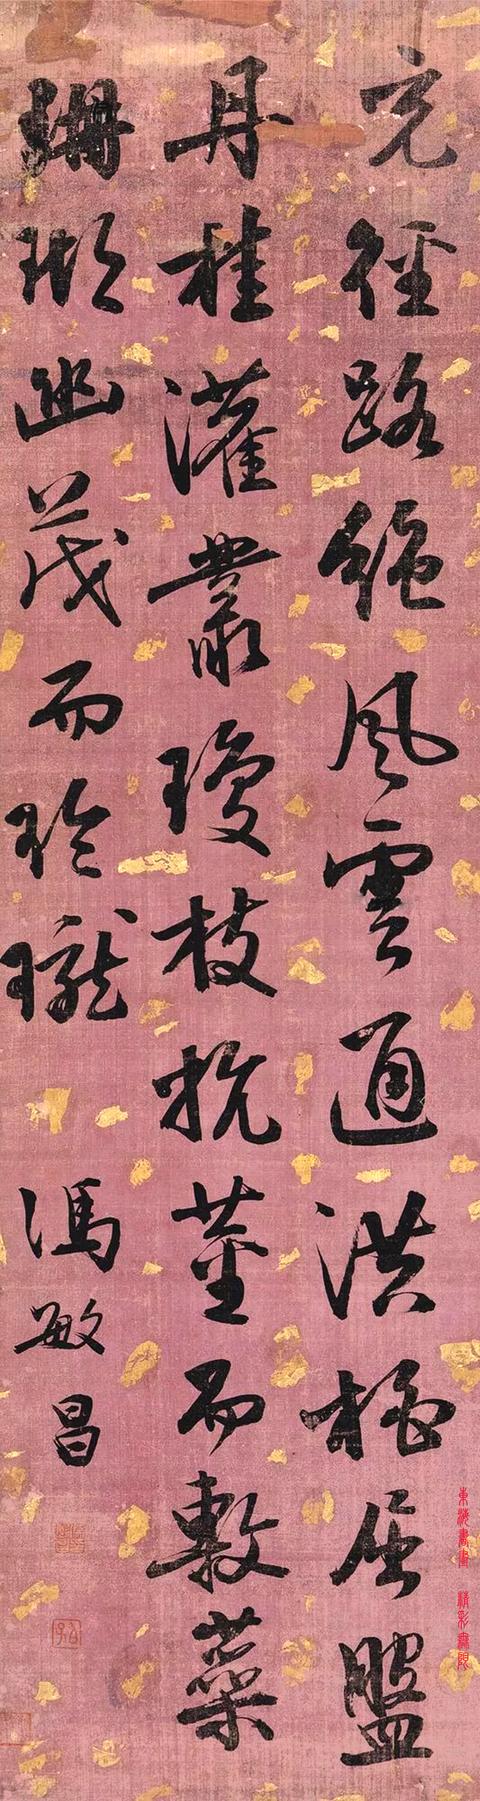 充徑路絕風雲通洪桃屈盤
丹桂灌叢瓊枝抗莖而敷蘂
珊瑚幽茂而玲瓏
馮敏昌